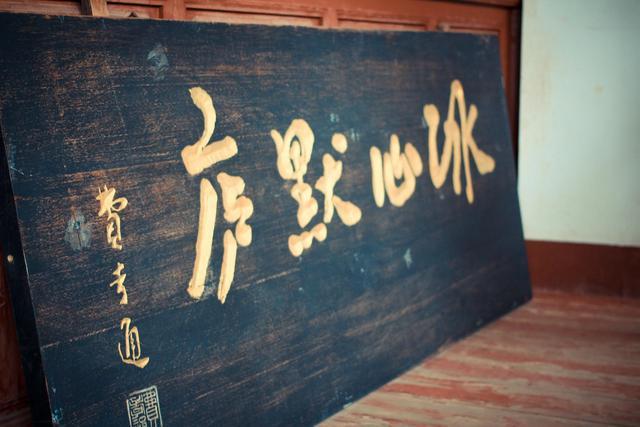 冰心默庐
費孝通